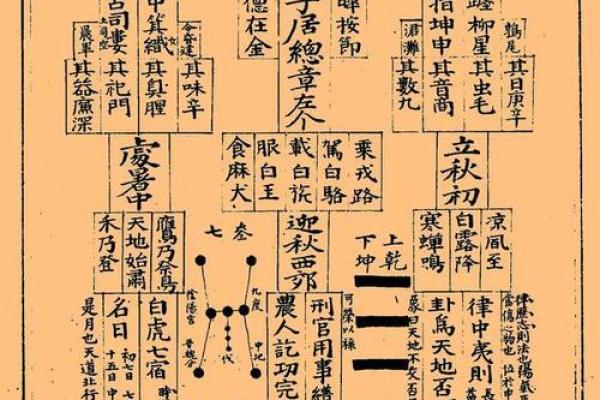 鶉尾
其日庚辛
躔柳星
其虫毛
指坤申
其音商
涒灘
其數九
按節
子居總章左个
德在金
其味辛
其臭腥
其祀門
其器廉深
立秋初
乘戎路
駕白駱
載白旂
服白玉
食麻犬
處暑中
凉風至
白露降
寒蟬鳴
迎秋西郊
鷹乃祭鳥
天地始肅
禾乃登
上乾
下坤
叁
七
律中夷則
卦爲天地否
象曰天地不交否
可榮以祿
刑官用事
農人訖功完
白虎七宿
名曰
初七日
十五日
是月也天道北行